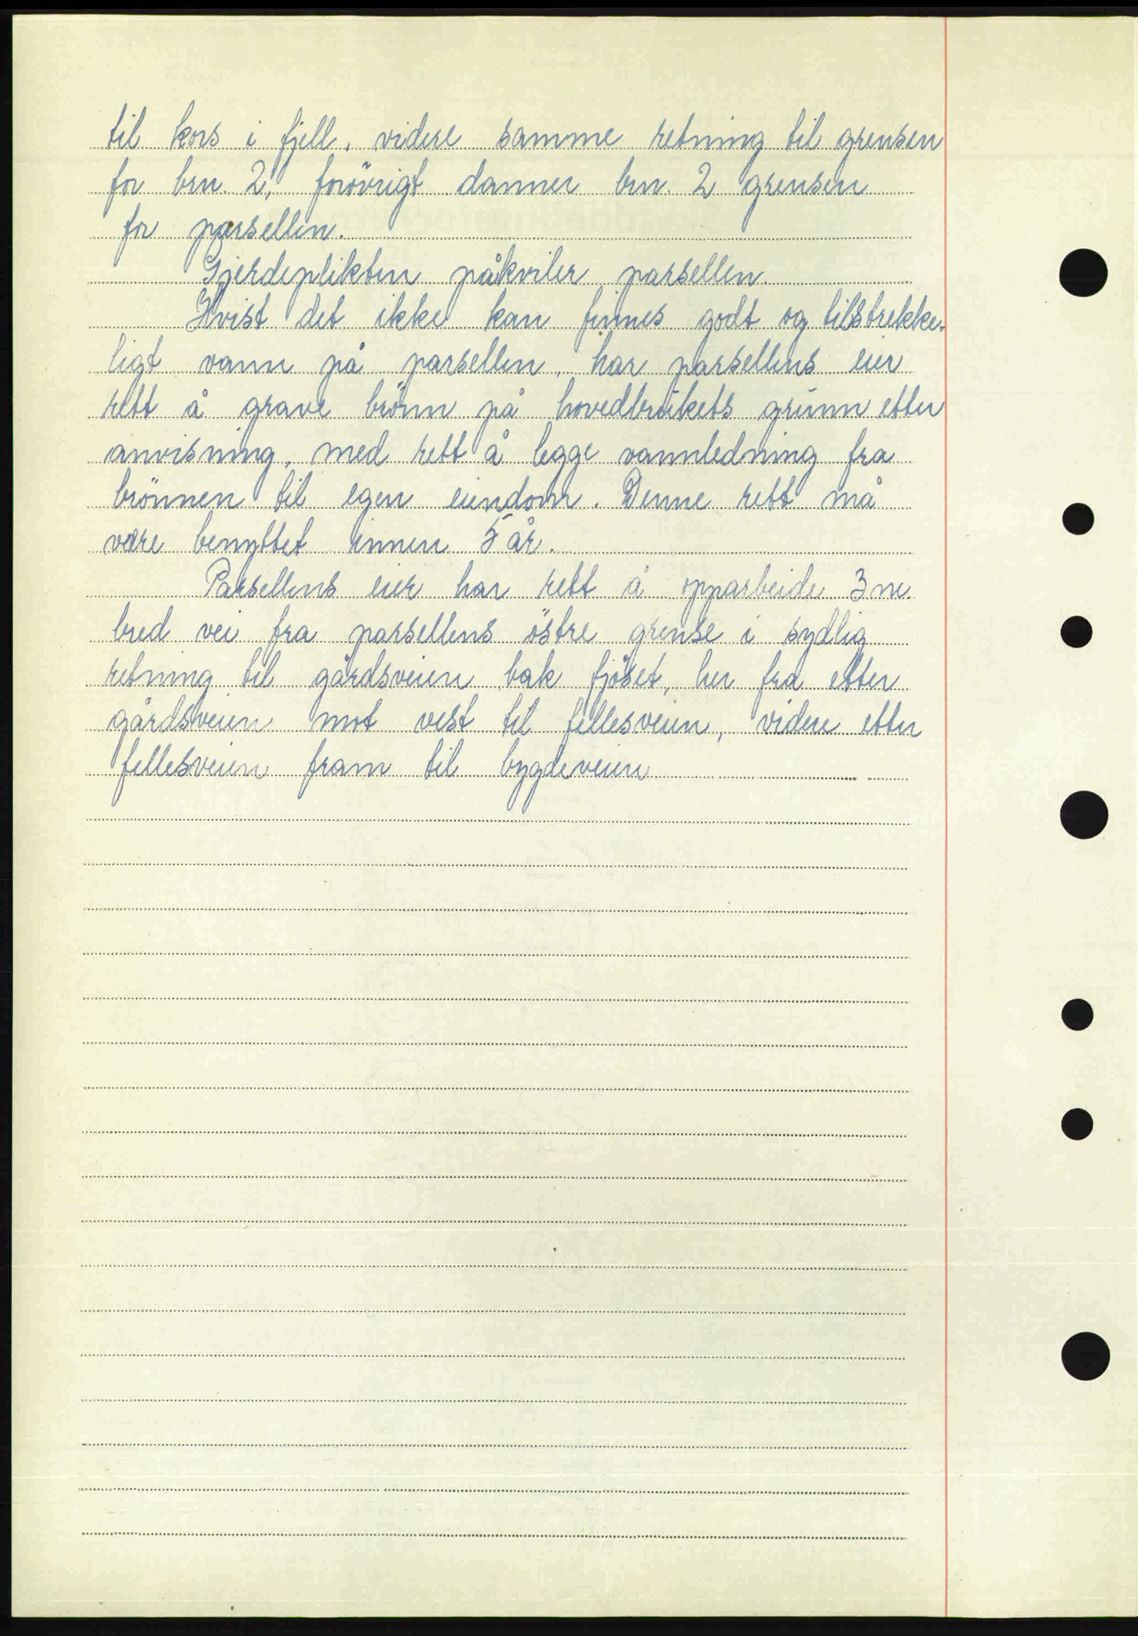 til kors i fjell, videre samme retning til grensen
for brn. 2, forövrigt danner brn 2 grensen
for parsellen.
Gjerdeplikten påkviler parsellen.
Hvist det ikke kan finnes godt og tilstrekke-
ligt vann på parsellen, har parsellens eier
rett å grave brönn på hovedbrukets grunn etter
anvisning, med rett å legge vannledning fra
brönnen til egen eiendom. Denne rett må
være benyttet innen 5 år.
Parsellens eier har rett å opparbeide 3 m
bred vei fra parsellens östre grense i sydlig
retning til gårdsveien bak fjöset, her fra etter
gårdsveien mot vest til fellesveien, videre etter
fellesveien fram til bygdeveien